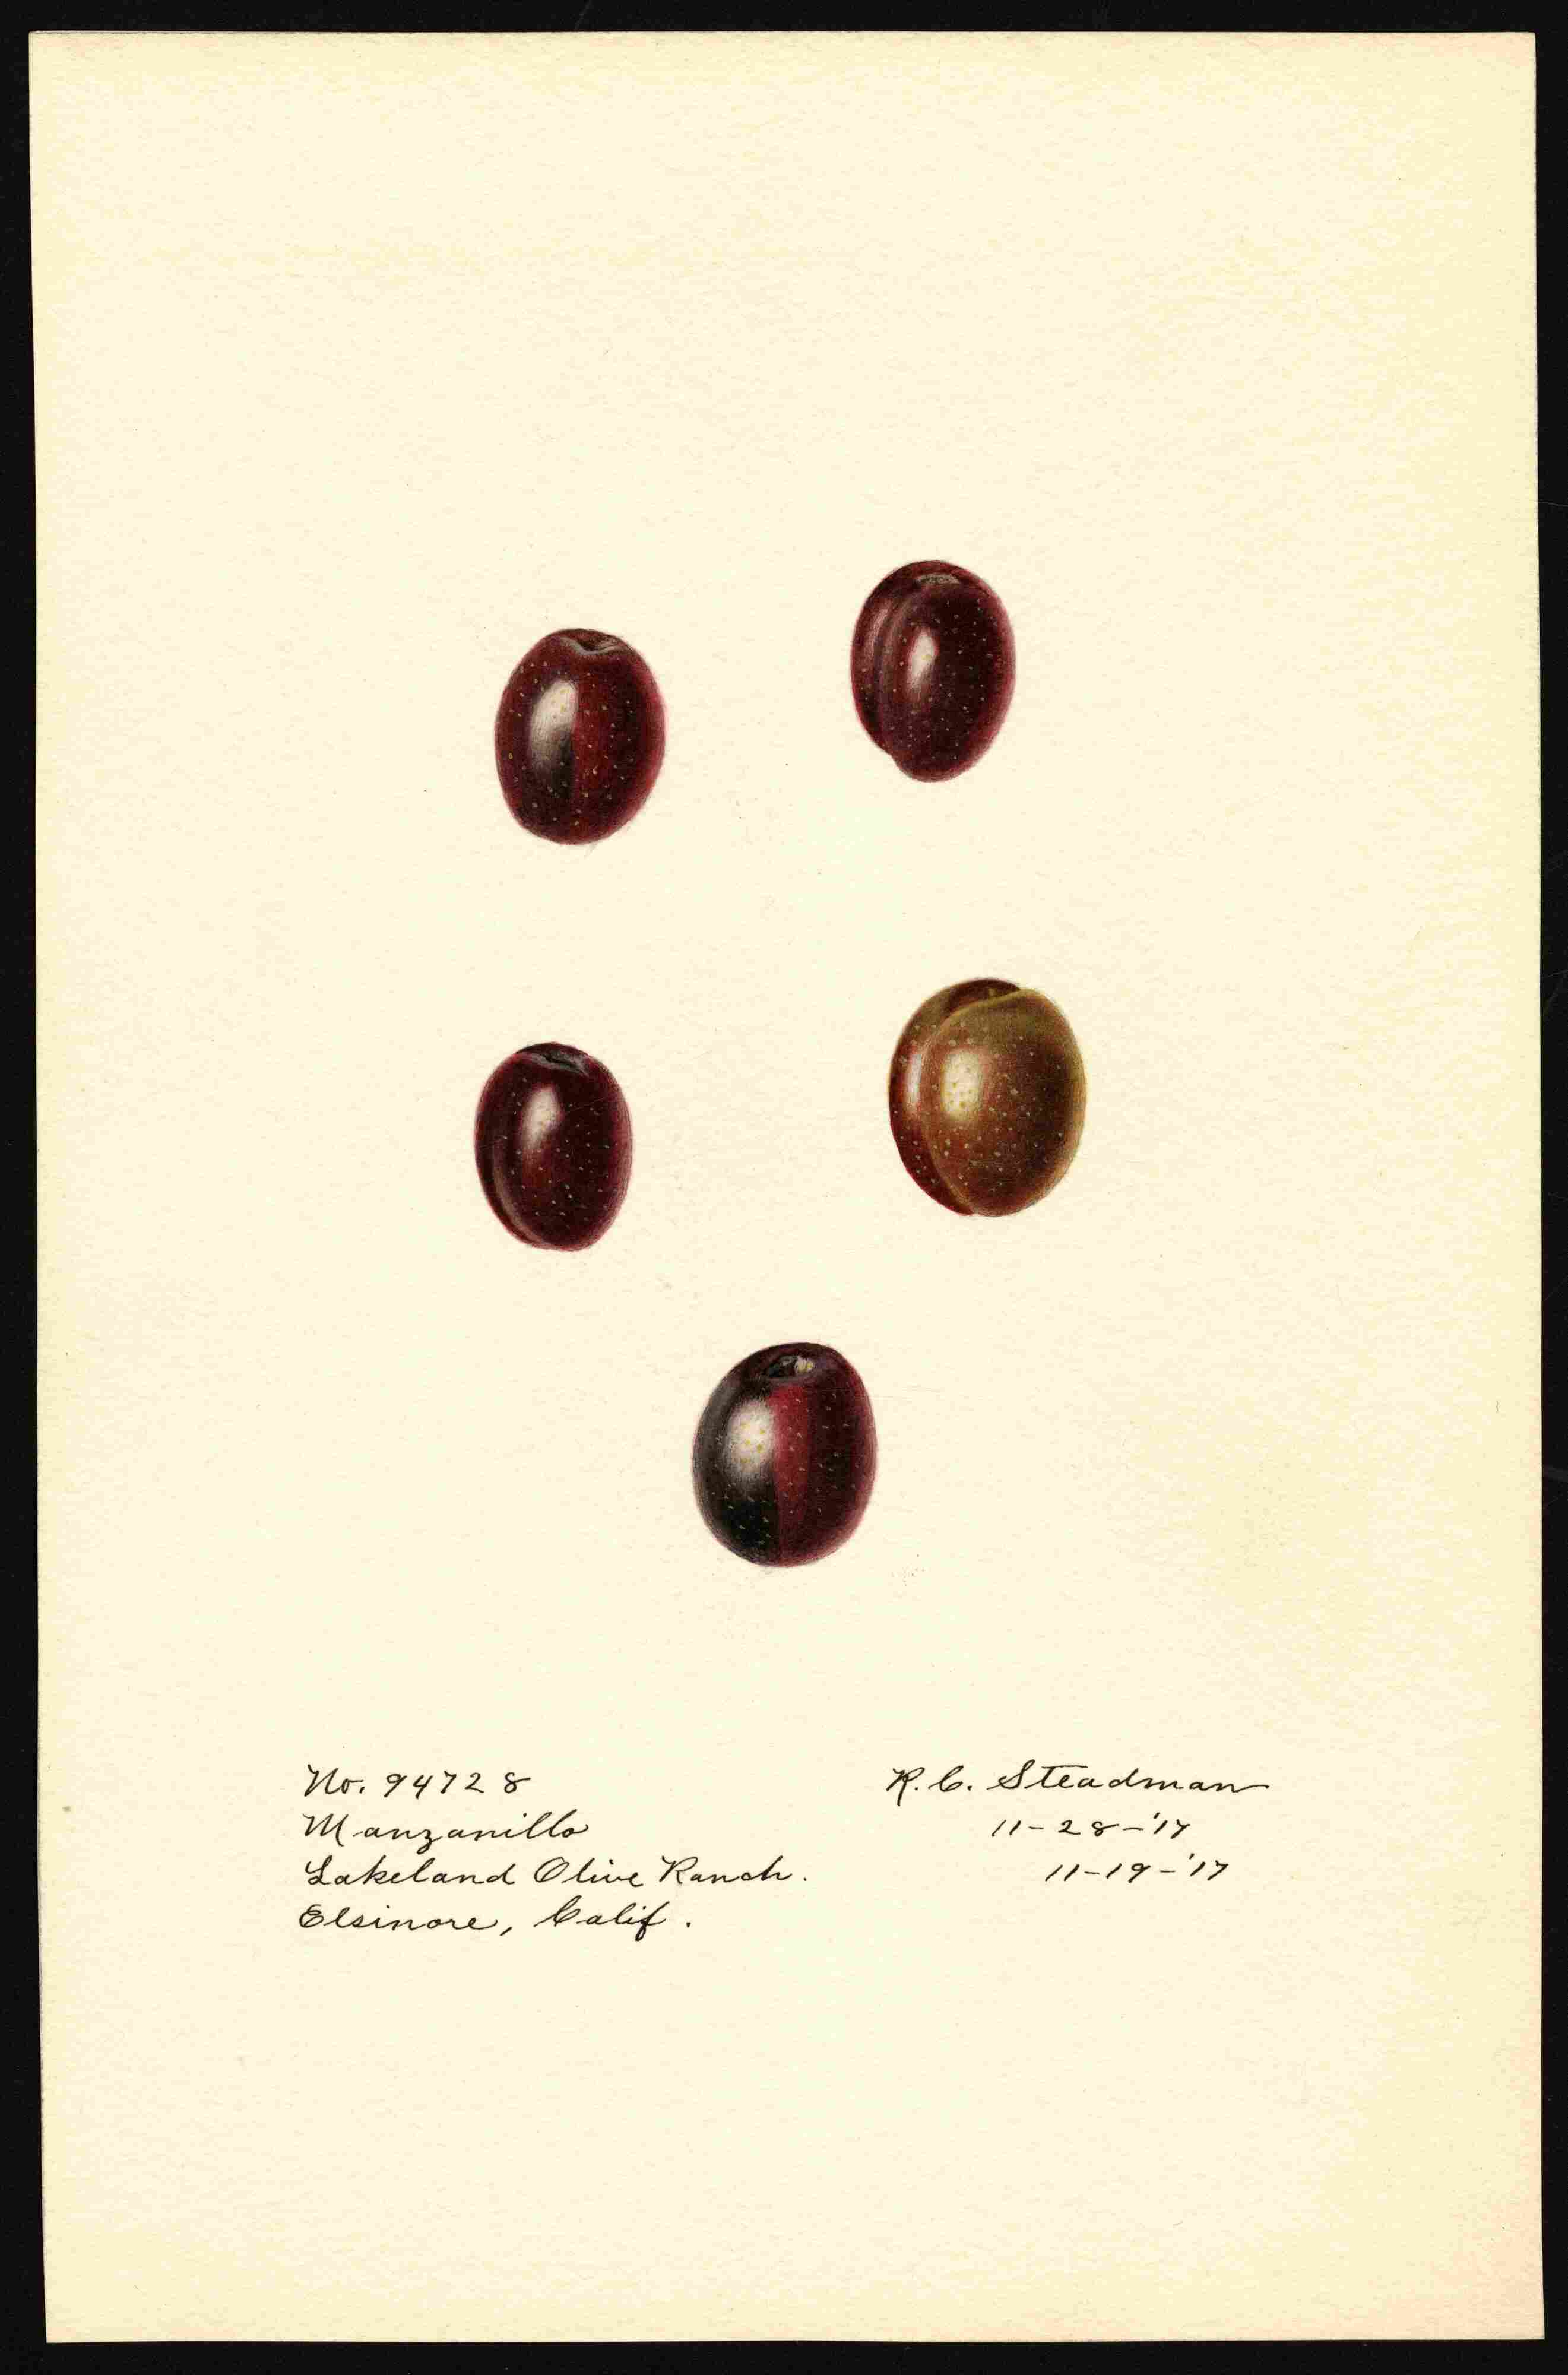 No. 94728
Manzanillo
Lakeland Olive Ranch.
Elsinore, Calif.
R. C. Steadman
11-28-'17
11-19-'17